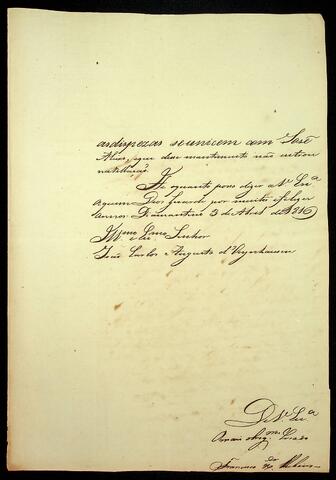 as despezas se unicem com José
Alves, que dise mantimento não entrou
na tilhaçaõ.
He oquanto poso dizer a V. Exª
aquem Deos guarde por muitos e felizes
annos. Diamantino 3 de Abril de 1816
Illmo e Exmo Senhor
João Carlos Augusto d'Oeynhausen
De V. Exª
omais obrigmo Criado
Francisco